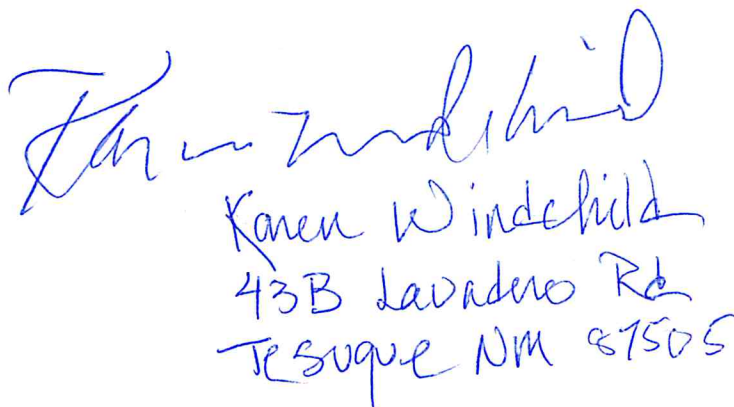 Karen Windchild
Karen Windchild
43B Lavadero Rd
Tesuque NM 87505